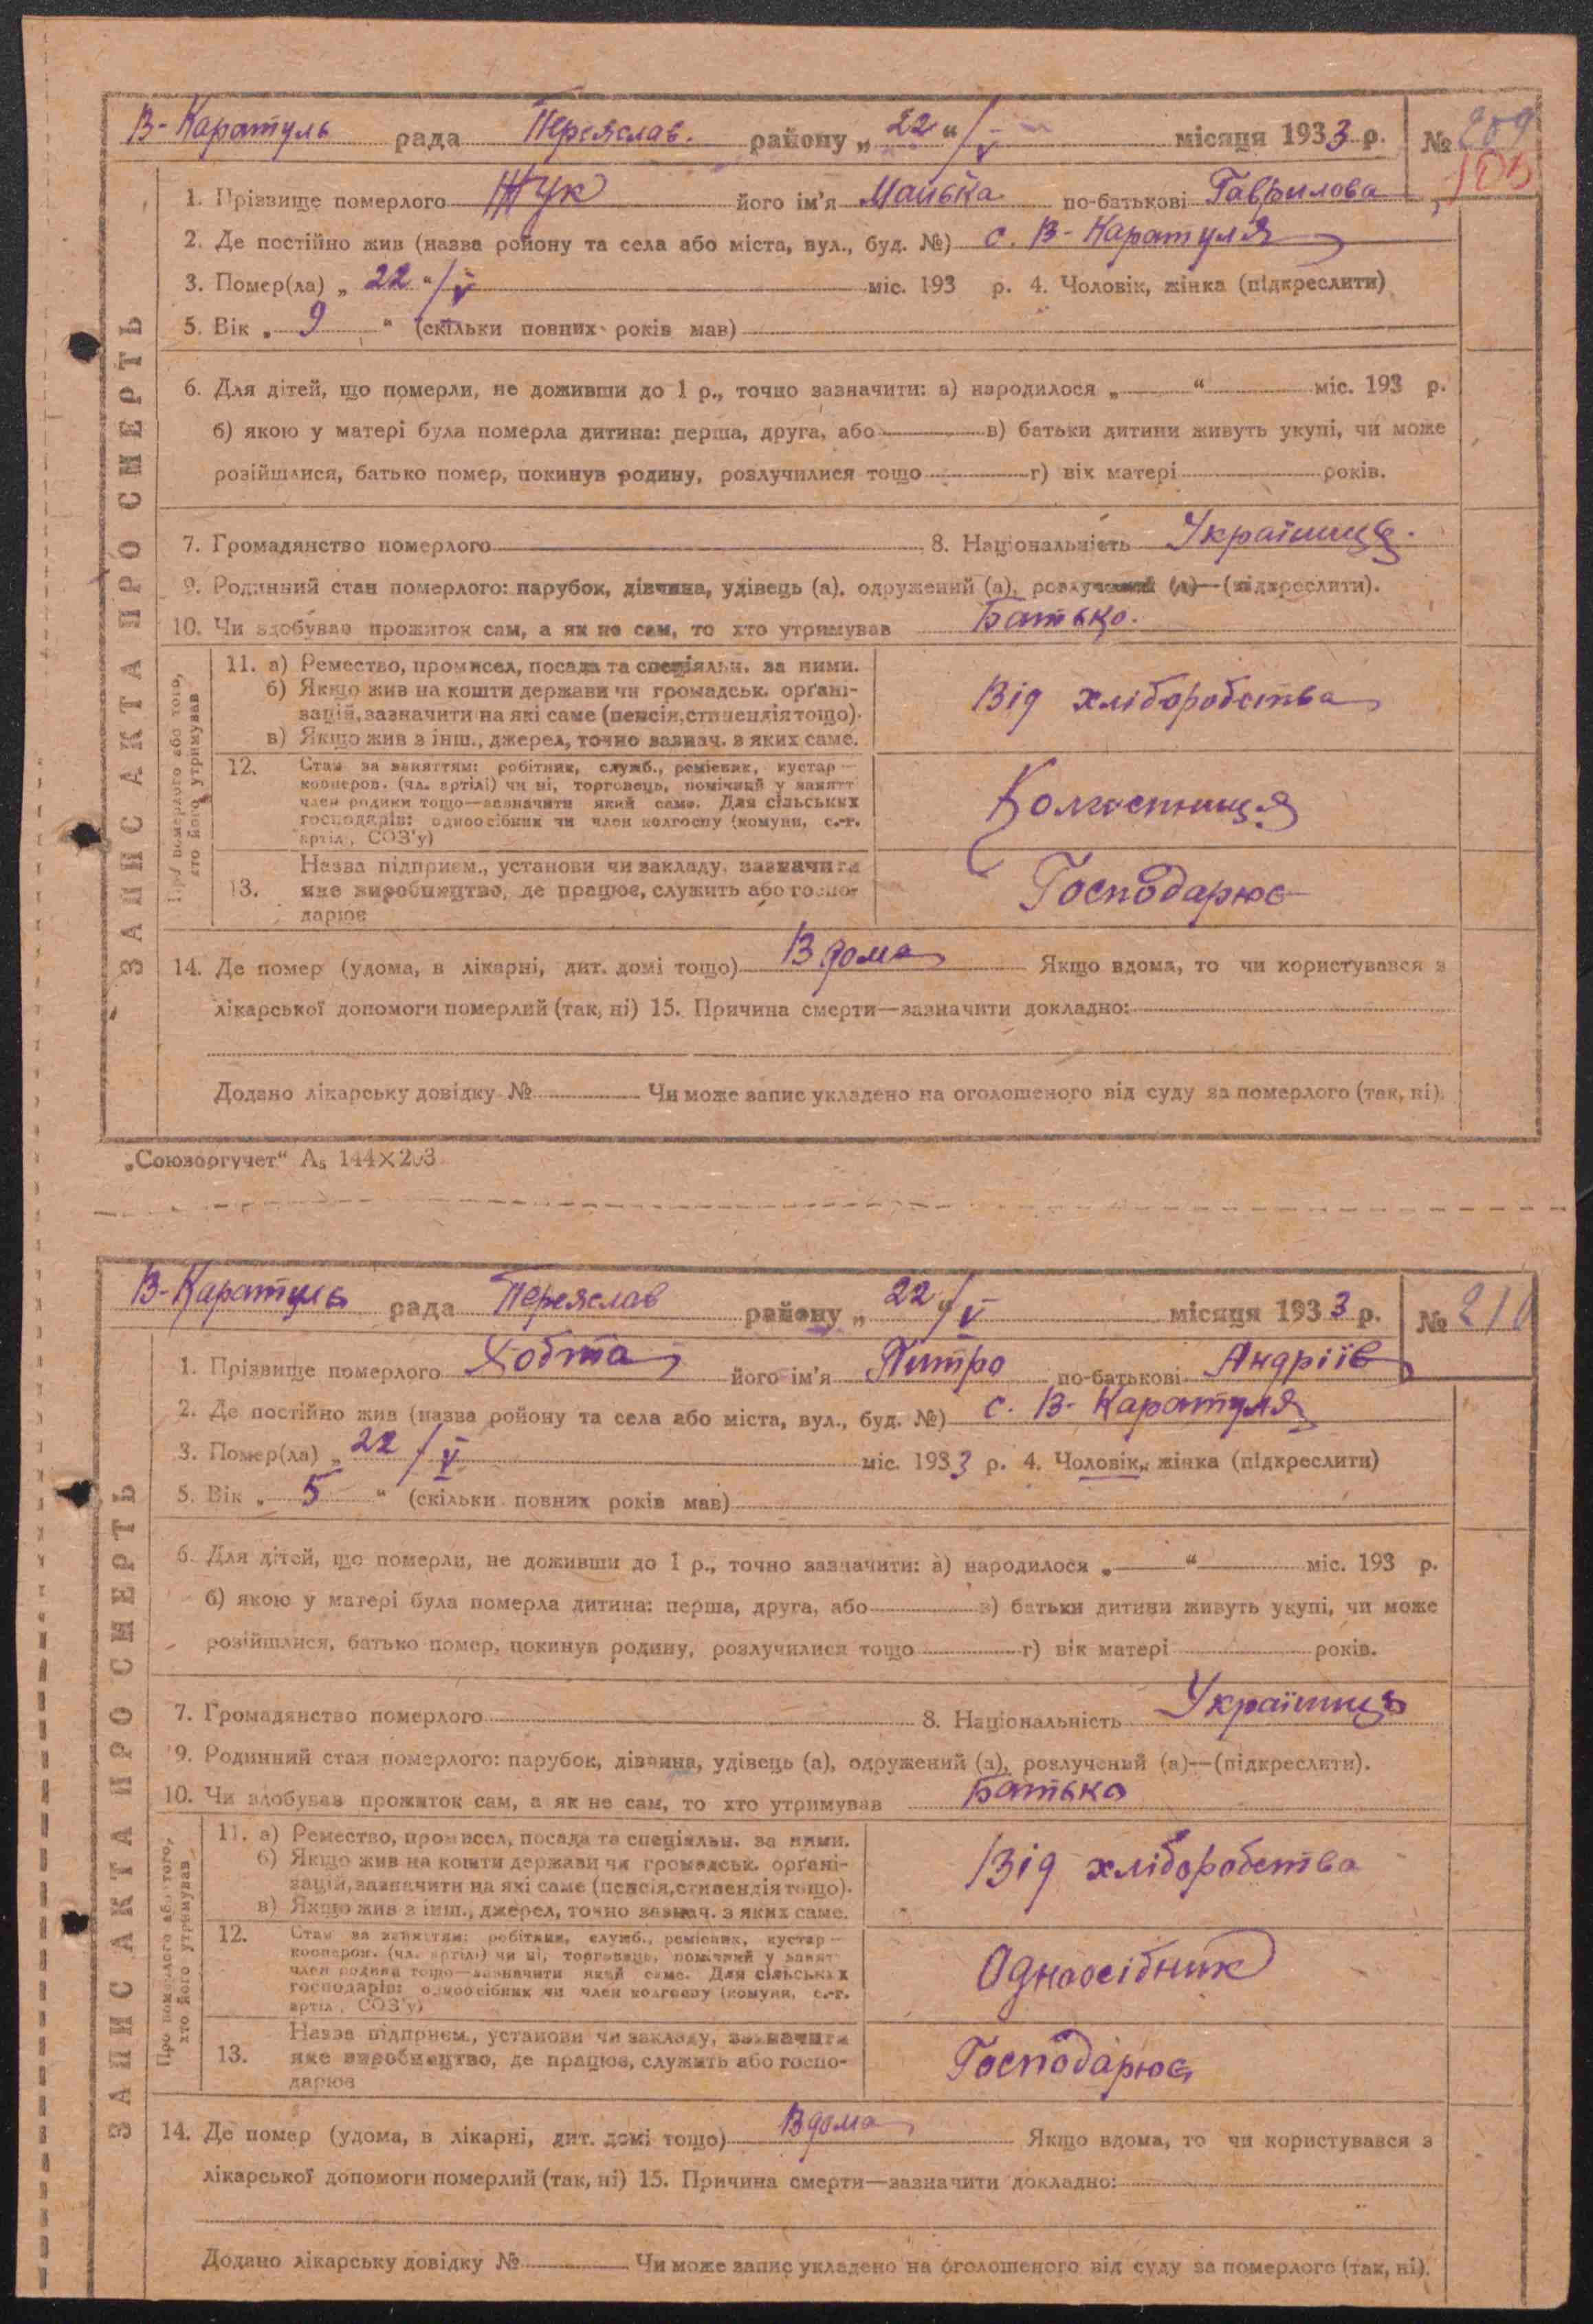 В-Каратуль рада Переяслав. району „22“/V місяця 1933 р. № 209
1. Прізвище померлого Жук його ім'я Манька по-батькові Гаврилова
2. Де постійно жив (назва ройону та села або міста, вул., буд. №) с. В-Каратуля
3. Помер(ла) „22“/V міс. 193 р. 4. Чоловік, жінка (підкреслити)
5. Вік „9“ (скільки повних років мав)
6. Для дітей, що померли, не доживши до 1 р., точно зазначити: а) народилося „ “ міс. 193 р.
б) якою у матері була померла дитина: перша, друга, або в) батьки дитини живуть укупі, чи може
розійшлися, батько помер, покинув родину, розлучилися тощо г) вік матері років.
7. Громадянство померлого 8. Національність Українця.
9. Родинний стан померлого: парубок, дівчина, удівець (а), одружений (а), розлучений (а)—(підкреслити).
10. Чи здобував прожиток сам, а як не сам, то хто утримував Батько.
11. а) Ремество, промисел, посада та спеціяльн. за ними.
б) Якщо жив на кошти держави чи громадськ. орґані-
зацій, зазначити на які саме (пенсія, стипендія тощо).
в) Якщо жив з інш., джерел, точно зазнач. з яких саме.
Від хліборобства
12. Стан за заняттям: робітник, служб., ремісник, кустар—
кооперов. (чл. артілі) чи ні, торговець, помічний у занятт
член родини тощо—зазначити який саме. Для сільських
господарів: одноосібник чи член колгоспу (комуни, с.-г.
артіл., СОЗ'у)
Колгоспниця
13. Назва підприєм., установи чи закладу, зазначити
яке виробництво, де працює, служить або госпо-
дарює
Господарює
14. Де помер (удома, в лікарні, дит. домі тощо) В дома Якщо вдома, то чи користувався з
лікарської допомоги померлий (так, ні) 15. Причина смерти—зазначити докладно:
Додано лікарську довідку № Чи може запис укладено на оголошеного від суду за померлого (так, ні).
ЗАПИС АКТА ПРО СМЕРТЬ
Про померлого або того,
хто його утримував
„Союзоргучет“ А₅ 144×203
В-Каратуль рада Переяслав району „22“/V місяця 1933 р. № 210
1. Прізвище померлого Хобта його ім'я Питро по-батькові Андріїв
2. Де постійно жив (назва ройону та села або міста, вул., буд. №) с. В-Каратуля
3. Помер(ла) „22/V міс. 1933 р. 4. Чоловік, жінка (підкреслити)
5. Вік „5“ (скільки повних років мав)
6. Для дітей, що померли, не доживши до 1 р., точно зазначити: а) народилося „ “ міс. 193 р.
б) якою у матері була померла дитина: перша, друга, або в) батьки дитини живуть укупі, чи може
розійшлися, батько помер, покинув родину, розлучилися тощо г) вік матері років.
7. Громадянство померлого 8. Національність Українця
9. Родинний стан померлого: парубок, дівчина, удівець (а), одружений (а), розлучений (а)—(підкреслити).
10. Чи здобував прожиток сам, а як не сам, то хто утримував Батько
11. а) Ремество, промисел, посада та спеціяльн. за ними.
б) Якщо жив на кошти держави чи громадськ. орґані-
зацій, зазначити на які саме (пенсія, стипендія тощо).
в) Якщо жив з інш., джерел, точно зазнач. з яких саме.
Від хліборобства
12. Стан за заняттям: робітник, служб., ремісник, кустар—
кооперов. (чл. артілі) чи ні, торговець, помічний у занят
член родини тощо—зазначити який саме. Для сільських
господарів: одноосібник чи член колгоспу (комуни, с.-г.
артіл., СОЗ'у)
Одноосібник
13. Назва підприєм., установи чи закладу, зазначити
яке виробництво, де працює, служить або госпо-
дарює
Господарює
14. Де помер (удома, в лікарні, дит. домі тощо) Вдома Якщо вдома, то чи користувався з
лікарської допомоги померлий (так, ні) 15. Причина смерти—зазначити докладно:
Додано лікарську довідку № Чи може запис укладено на оголошеного від суду за померлого (так, ні).
ЗАПИС АКТА ПРО СМЕРТЬ
Про померлого або того,
хто його утримував